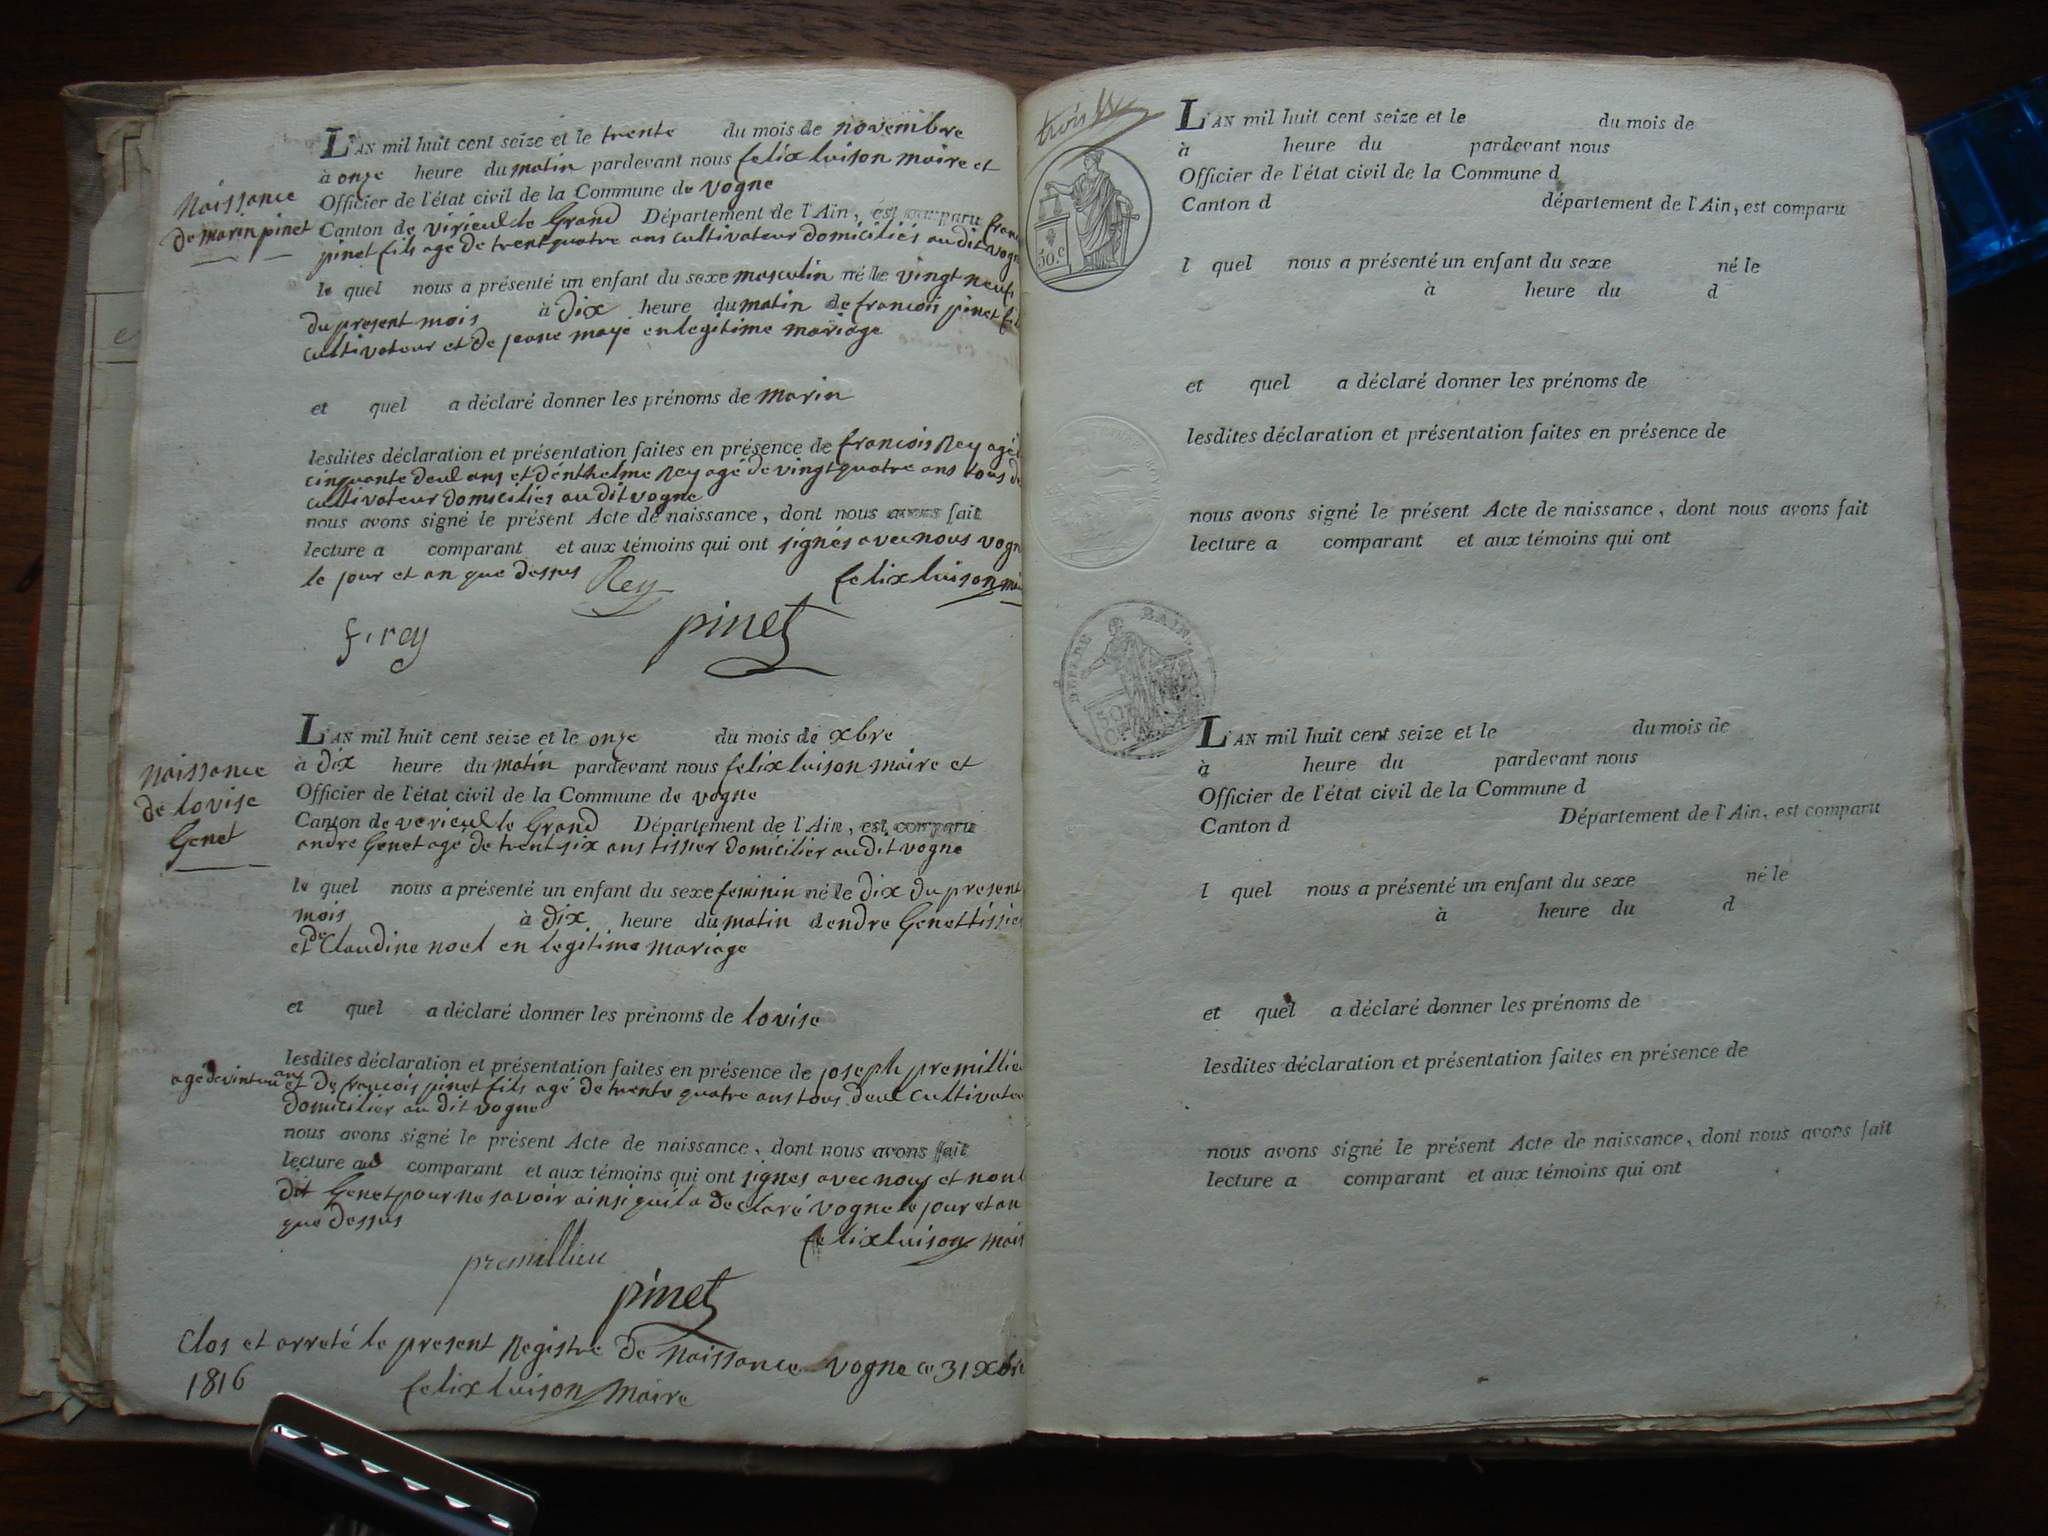 L'AN mil huit cent seize et le trente du mois de novembre
à onze heure du matin pardevant nous felix luison maire et
Officier de l'état civil de la Commune de vogne
Naissance
de marin pinet
Canton de virieul le Grand Département de l'Ain, est comparu
pinet fils agé de trent quatre ans cultivateur domiciliés au dit vogne
le quel nous a présenté un enfant du sexe masculin né le vingt neuf
du present mois à Dix heure du matin de francois pinet
cultivateur et de jeane maye en legitime mariage
et quel a déclaré donner les prénoms de marin
lesdites déclaration et présentation faites en présence de francois Rey agé
cinquante deul ans et d'enthelme Rey agé de vingt quatre ans tous
cultivateur domiciliés au dit vogne
nous avons signé le présent Acte de naissance, dont nous avons fait
lecture a comparant et aux témoins qui ont signés avec nous
le jour et an que dessus Rey felix luison
f. rey pinet
L'AN mil huit cent seize et le onze du mois de xbre
à dix heure du matin pardevant nous felix luison maire et
Officier de l'état civil de la Commune de vogne
Naissance
de lovise
Genet
Canton de verieul le Grand Département de l'Ain, est comparu
andre Genet agé de trent six ans tissier domicilier au dit vogne
le quel nous a présenté un enfant du sexe feminin né le dix du present
mois à dix heure du matin dendre Genet tissier
et de Claudine noel en legitime mariage
et quel a déclaré donner les prénoms de lovise
lesdites déclaration et présentation faites en présence de joseph
et de francois pinet fils agé de trente quatre ans tous deul
domicilier au dit vogne
nous avons signé le présent Acte de naissance, dont nous avons fait
lecture au comparant et aux témoins qui ont signes avec nous et non
dit Genet pour ne savoir ainsi quil a declaré vogne le jour et an
que dessus
felix luison
premillieu
pinet
Clos et arreté le present Registre de Naissance vogne ce 31 Xbre
1816
felix luison maire
trois
50. C.
L'AN mil huit cent seize et le du mois de
à heure du pardevant nous
Officier de l'état civil de la Commune d
Canton d département de l'Ain, est comparu
l quel nous a présenté un enfant du sexe né le
à heure du d
et quel a déclaré donner les prénoms de
lesdites déclaration et présentation faites en présence de
nous avons signé le présent Acte de naissance, dont nous avons fait
lecture a comparant et aux témoins qui ont
L'AN mil huit cent seize et le du mois de
à heure du pardevant nous
Officier de l'état civil de la Commune d
Canton d Département de l'Ain, est comparu
l quel nous a présenté un enfant du sexe né le
à heure du d
et quel a déclaré donner les prénoms de
lesdites déclaration et présentation faites en présence de
nous avons signé le présent Acte de naissance, dont nous avons fait
lecture a comparant et aux témoins qui ont